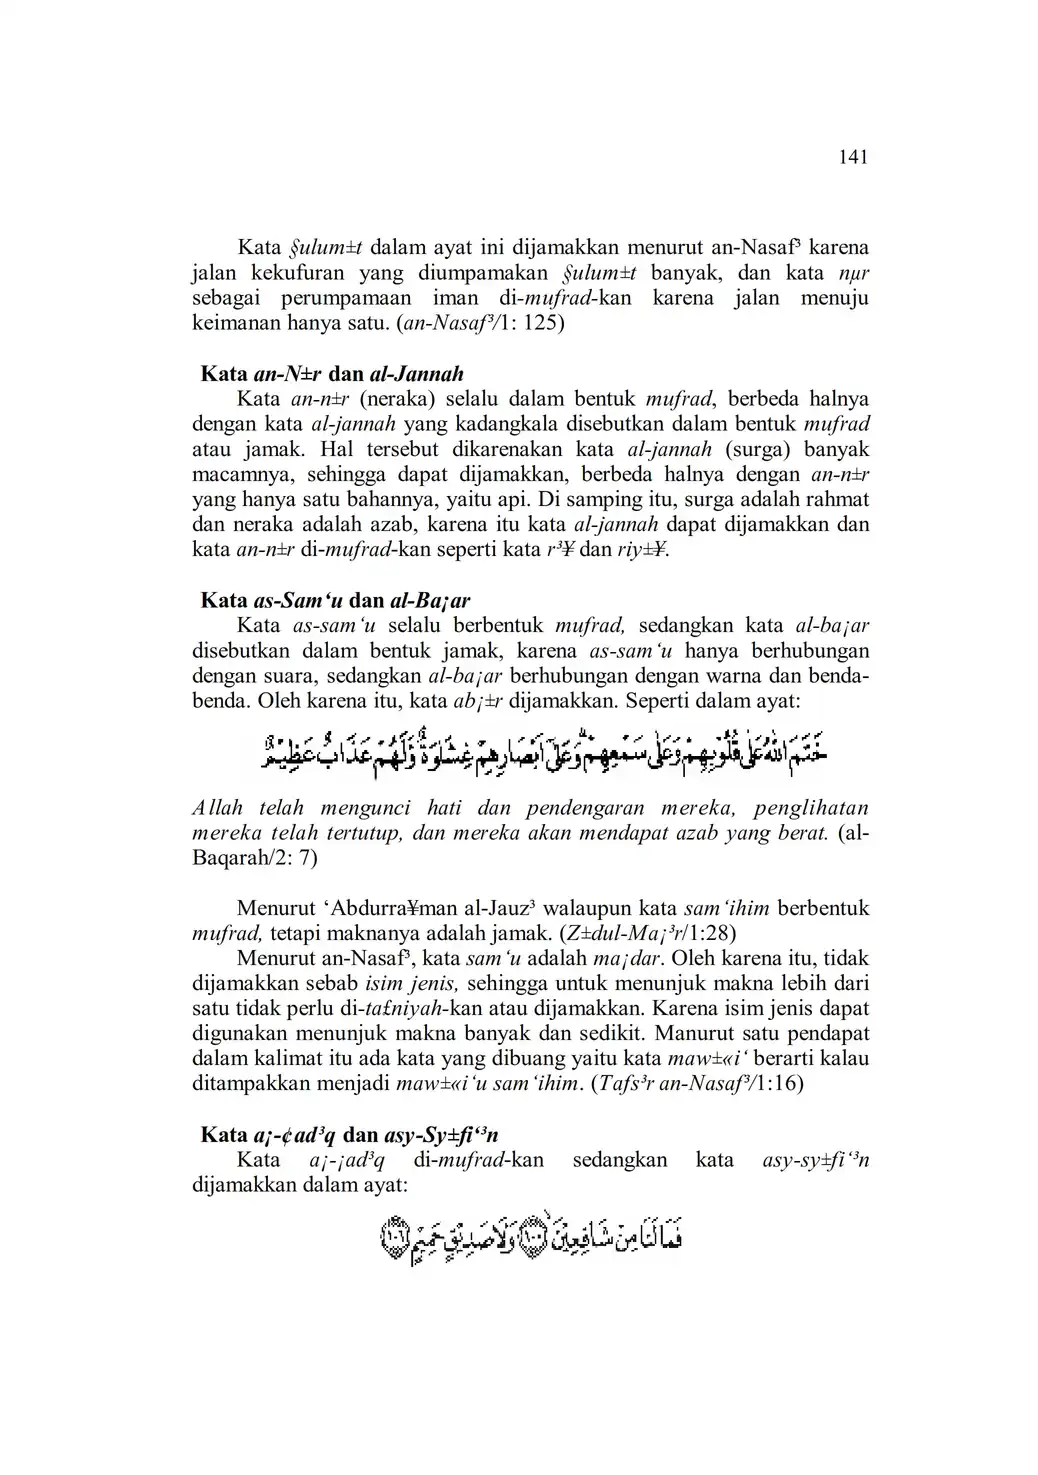 141
Kata §ulum±t dalam ayat ini dijamakkan menurut an-Nasaf³ karena
jalan kekufuran yang diumpamakan §ulum±t banyak, dan kata nµr
sebagai perumpamaan iman di-mufrad-kan karena jalan menuju
keimanan hanya satu. (an-Nasaf³/1: 125)
Kata an-N±r dan al-Jannah
Kata an-n±r (neraka) selalu dalam bentuk mufrad, berbeda halnya
dengan kata al-jannah yang kadangkala disebutkan dalam bentuk mufrad
atau jamak. Hal tersebut dikarenakan kata al-jannah (surga) banyak
macamnya, sehingga dapat dijamakkan, berbeda halnya dengan an-n±r
yang hanya satu bahannya, yaitu api. Di samping itu, surga adalah rahmat
dan neraka adalah azab, karena itu kata al-jannah dapat dijamakkan dan
kata an-n±r di-mufrad-kan seperti kata r³¥ dan riy±¥.
Kata as-Sam‘u dan al-Ba¡ar
Kata as-sam‘u selalu berbentuk mufrad, sedangkan kata al-ba¡ar
disebutkan dalam bentuk jamak, karena as-sam‘u hanya berhubungan
dengan suara, sedangkan al-ba¡ar berhubungan dengan warna dan benda-
benda. Oleh karena itu, kata ab¡±r dijamakkan. Seperti dalam ayat:
خَتَمَ اللّٰهُ عَلٰى قُلُوْبِهِمْ وَعَلٰى سَمْعِهِمْ ۗ وَعَلٰٓى اَبْصَارِهِمْ غِشَاوَةٌ ۖ وَّلَهُمْ عَذَابٌ عَظِيْمٌ
Allah telah mengunci hati dan pendengaran mereka, penglihatan
mereka telah tertutup, dan mereka akan mendapat azab yang berat. (al-
Baqarah/2: 7)
Menurut ‘Abdurra¥man al-Jauz³ walaupun kata sam‘ihim berbentuk
mufrad, tetapi maknanya adalah jamak. (Z±dul-Ma¡³r/1:28)
Menurut an-Nasaf³, kata sam‘u adalah ma¡dar. Oleh karena itu, tidak
dijamakkan sebab isim jenis, sehingga untuk menunjuk makna lebih dari
satu tidak perlu di-ta£niyah-kan atau dijamakkan. Karena isim jenis dapat
digunakan menunjuk makna banyak dan sedikit. Manurut satu pendapat
dalam kalimat itu ada kata yang dibuang yaitu kata maw±«i‘ berarti kalau
ditampakkan menjadi maw±«i‘u sam‘ihim. (Tafs³r an-Nasaf³/1:16)
Kata a¡-¢ad³q dan asy-Sy±fi‘³n
Kata a¡-¡ad³q di-mufrad-kan sedangkan kata asy-sy±fi‘³n
dijamakkan dalam ayat:
فَمَا لَنَا مِنْ شَافِعِيْنَ ۙ ١٠٠ وَلَا صَدِيْقٍ حَمِيْمٍ ١٠١